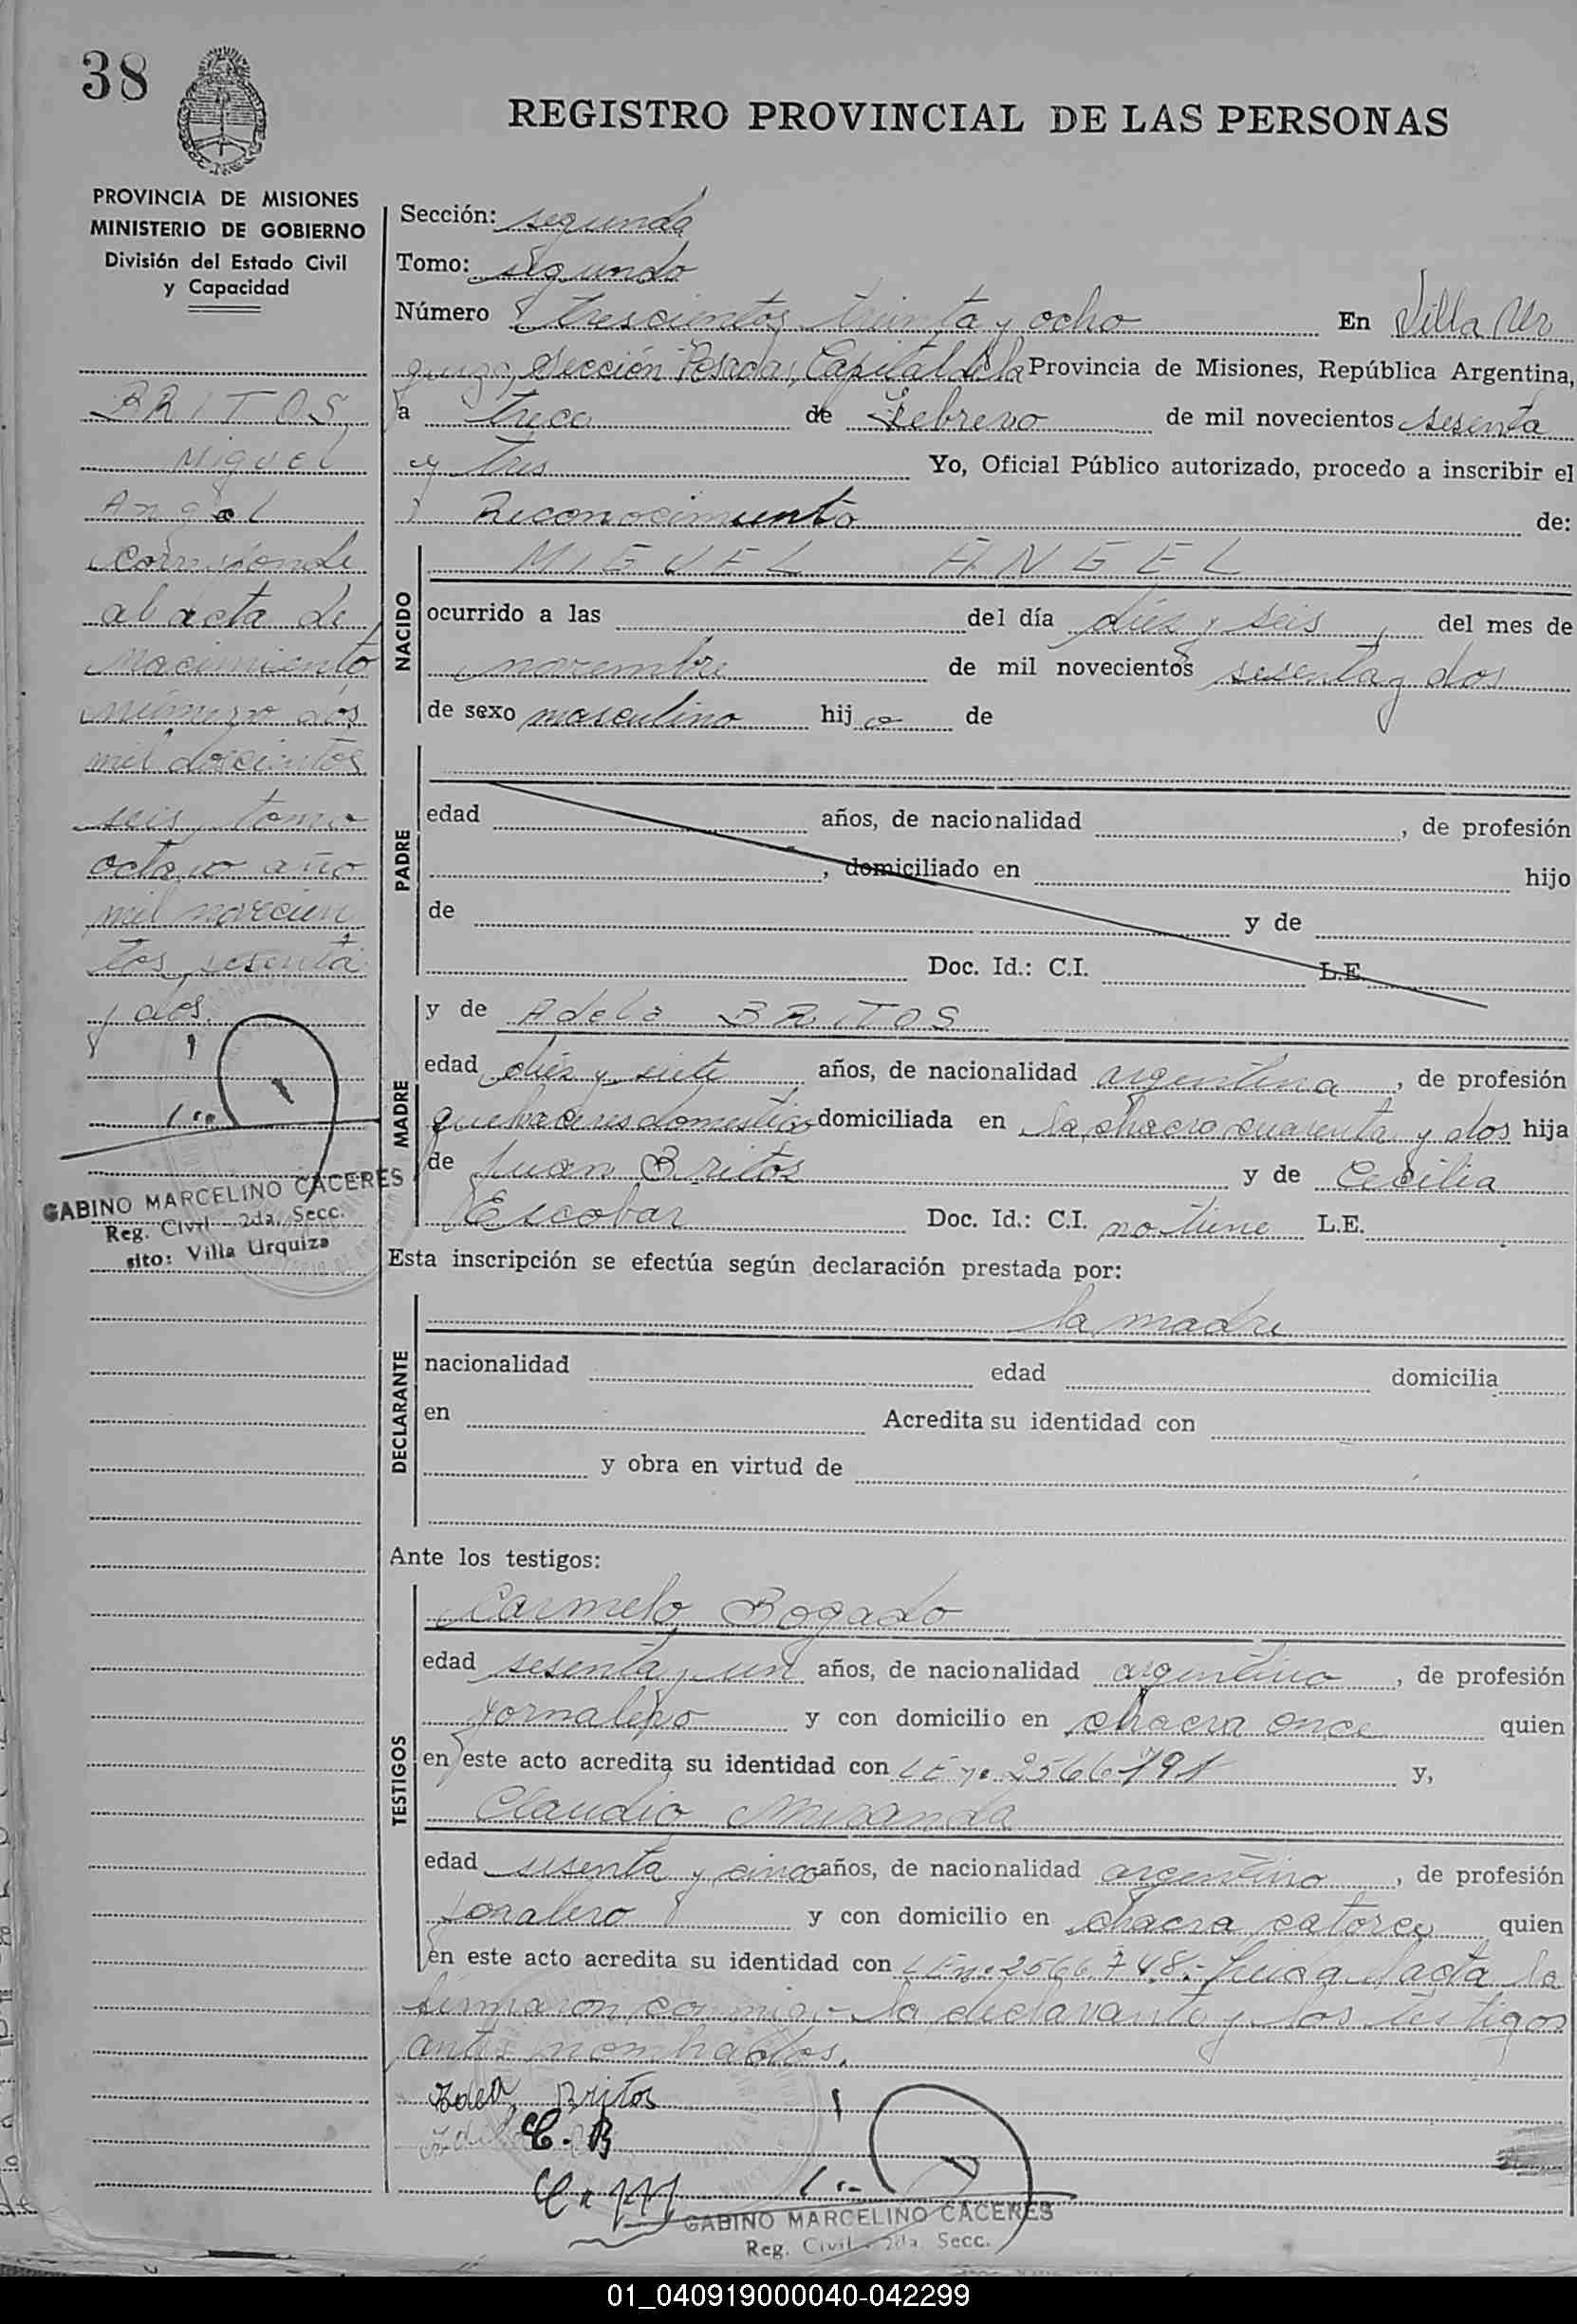 38
REGISTRO PROVINCIAL DE LAS PERSONAS
PROVINCIA DE MISIONES
MINISTERIO DE GOBIERNO
División del Estado Civil
y Capacidad
BRITOS
Miguel
Angel
corresponde
al acta de
nacimiento
número dos
mil doscientos
seis, tomo
octavo año
mil novecien
tos sesenta
y dos.
GABINO MARCELINO CACERES
Reg. Civil 2da. Secc.
sito: Villa Urquiza
Sección: segunda
Tomo: segundo
Número trescientos treinta y ocho En Villa Ur
quiza, Sección Posadas, Capital de la Provincia de Misiones, República Argentina,
a trece de Febrero de mil novecientos sesenta
y tres Yo, Oficial Público autorizado, procedo a inscribir el
Reconocimiento de:
NACIDO
MIGUEL ANGEL
ocurrido a las del día diez y seis del mes de
noviembre de mil novecientos sesenta y dos
de sexo masculino hij o de
PADRE
edad años, de nacionalidad , de profesión
, domiciliado en hijo
de y de
Doc. Id.: C.I. L.E.
MADRE
y de Adela BRITOS
edad diez y siete años, de nacionalidad argentina , de profesión
quehaceres domesticos domiciliada en la chacra cuarenta y dos hija
de Juan Britos y de Cecilia
Escobar Doc. Id.: C.I. no tiene L.E.
Esta inscripción se efectúa según declaración prestada por:
DECLARANTE
la madre
nacionalidad edad domicilia
en Acredita su identidad con
y obra en virtud de
Ante los testigos:
TESTIGOS
Carmelo Bogado
edad sesenta y un años, de nacionalidad argentino , de profesión
jornalero y con domicilio en chacra once quien
en este acto acredita su identidad con LE nº 2566791 y,
Claudio Miranda
edad sesenta y cinco años, de nacionalidad argentino , de profesión
jonalero y con domicilio en chacra catorce quien
en este acto acredita su identidad con LE nº 2566.748.- Leida el acta la
firmaron conmigo la declarante y los testigos
antes nombrados.
Britos
C. B
C. M
GABINO MARCELINO CACERES
Reg. Civil 2da. Secc.
01_040919000040-042299